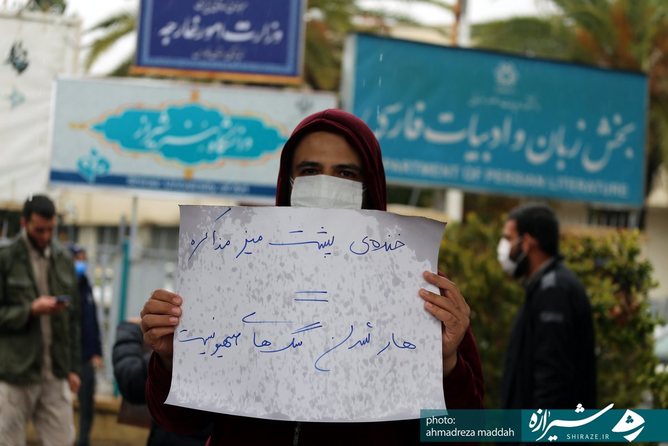 وزارت امور خارجه
دانشگاه هنر شیراز
بخش زبان و ادبیات فارسی
DEPARTMENT OF PERSIAN LITERATURE
خنده‌ی پشت میز مذاکره
=
هار شدن سگ‌های صهیونیست
photo:
ahmadreza maddah
شیرازه
SHIRAZE.IR